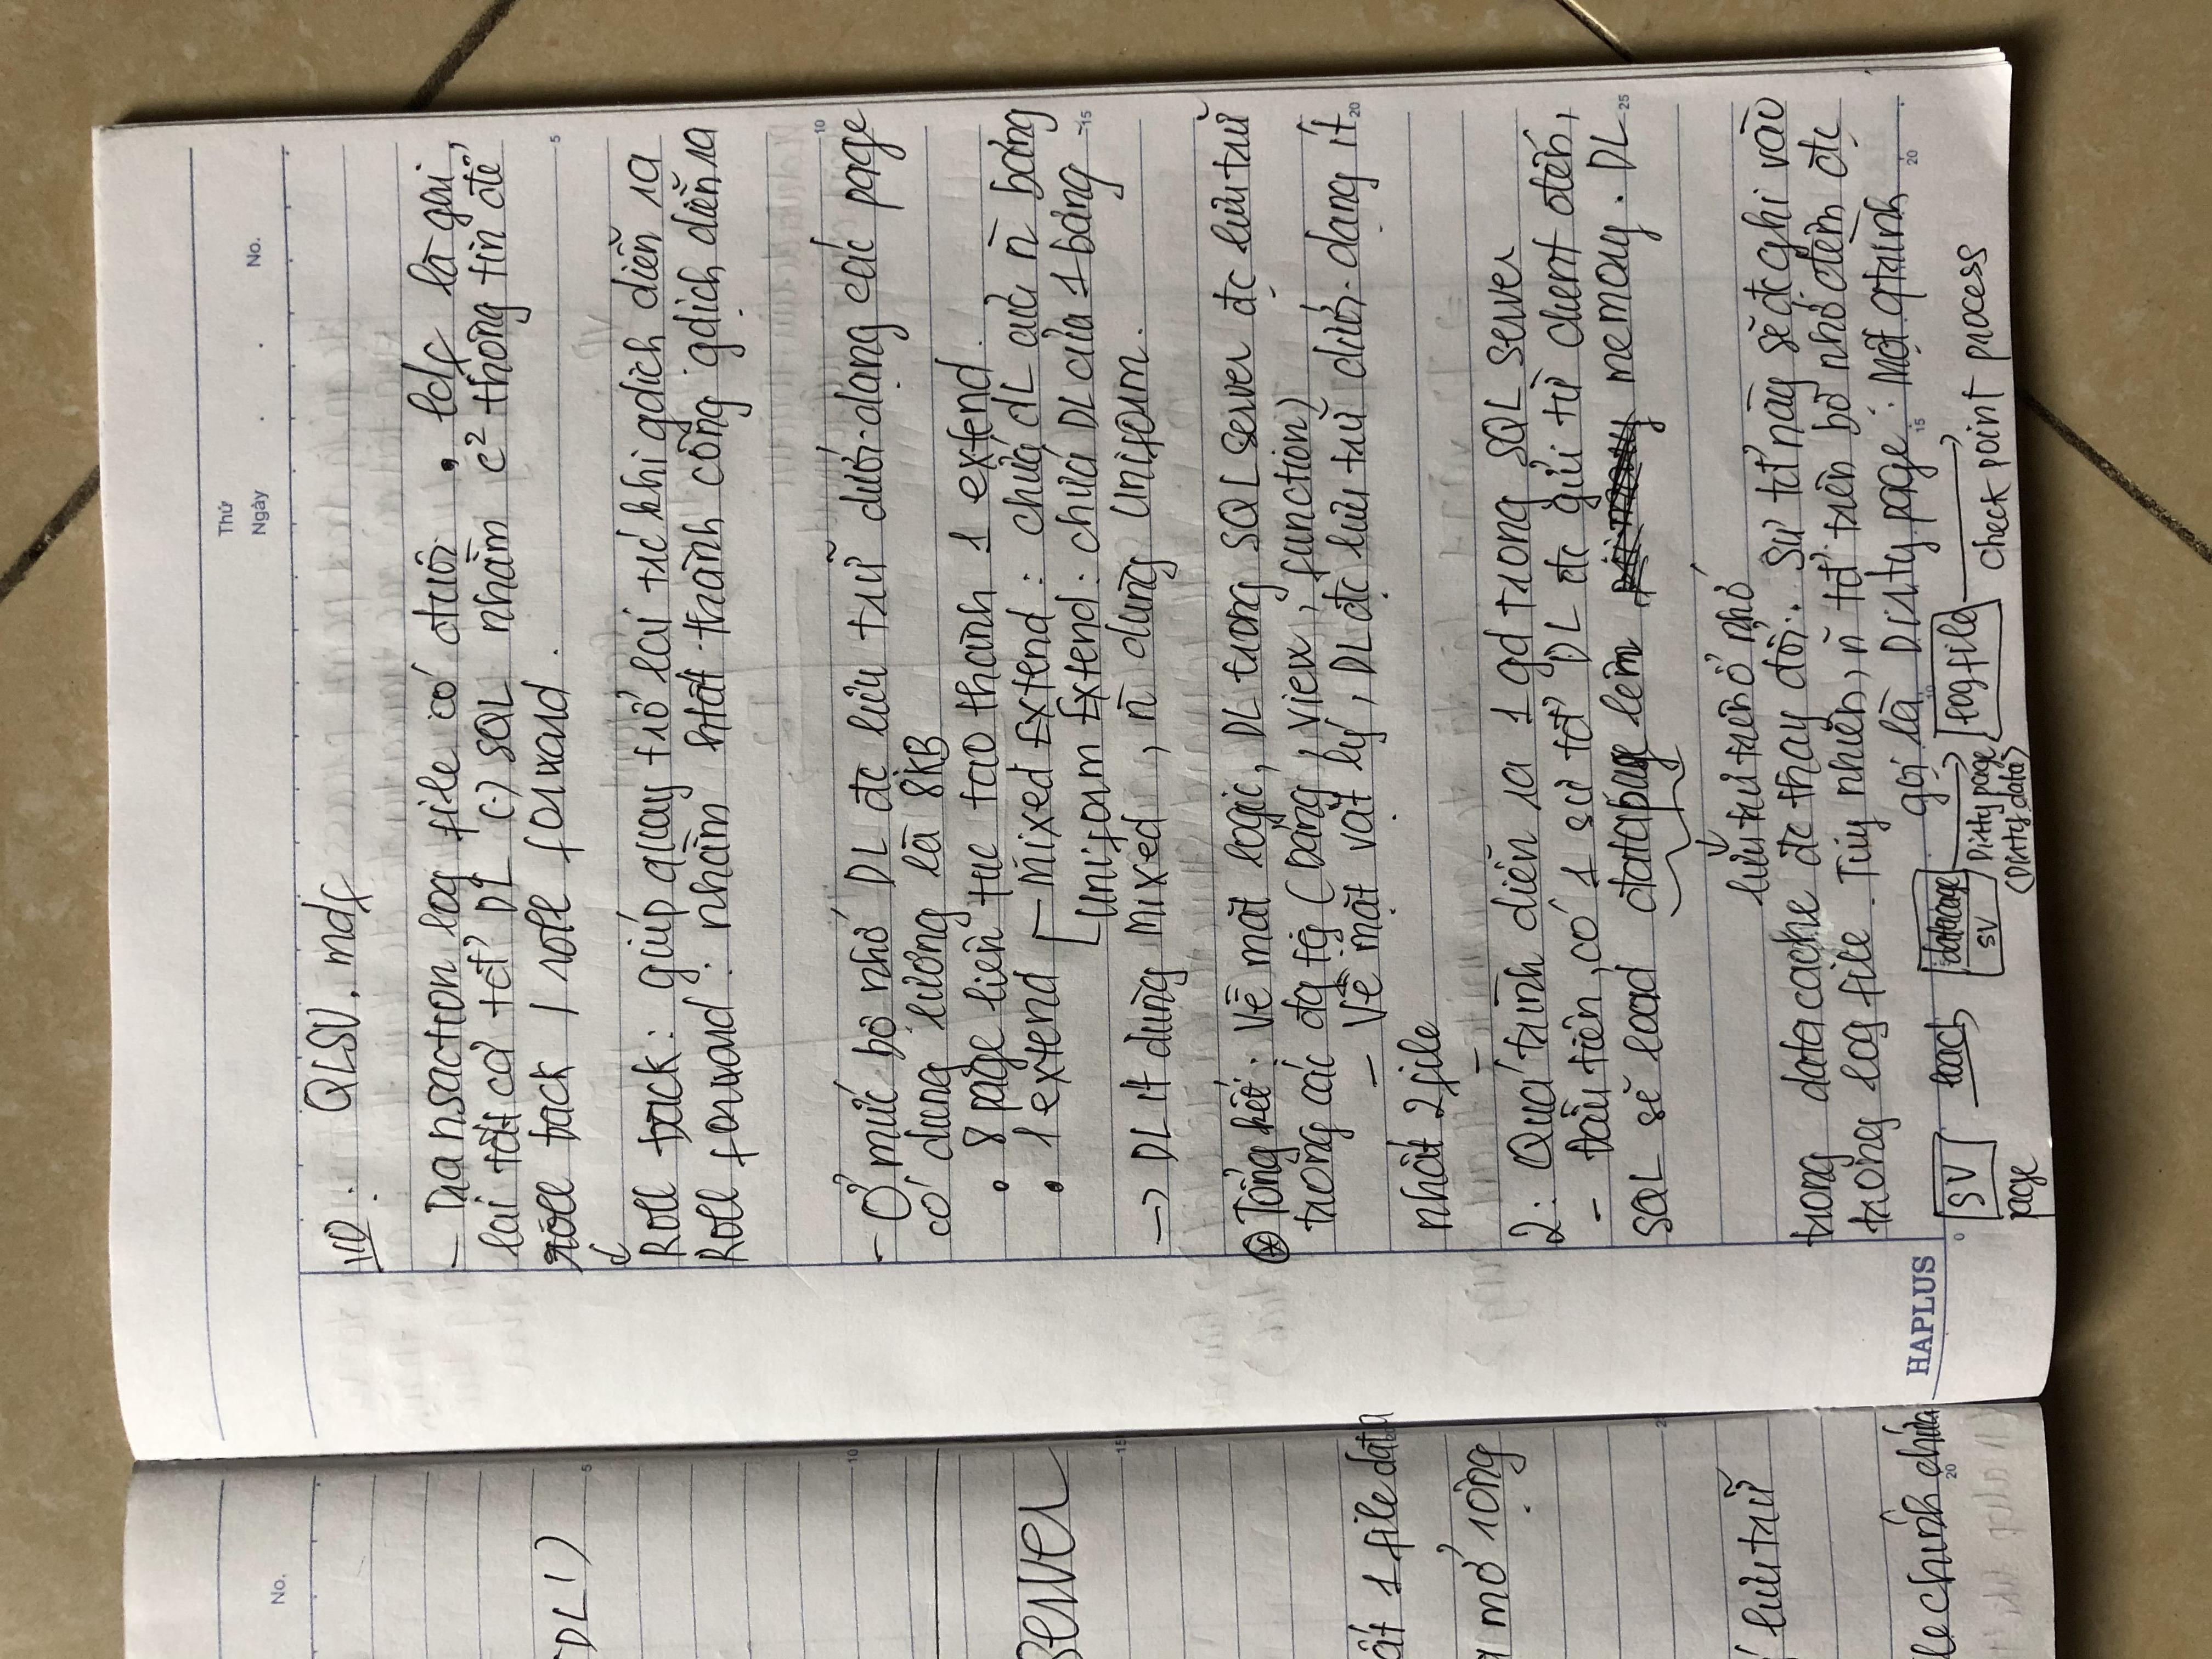 No.
DL')
5
10
server
15
ất 1 file data
mở rộng
lưu trữ
le chính chứa
20
Thứ
Ngày . . No.
VD : QLSV. mdf
- Transaction log file có đuôi . ldf là gai
lại tất cả tđ DL (.) SQL nhằm c² thông tin để
roll back / roll forward .
5
↓
Roll back : giúp quay trở lại trc khi gdịch diễn ra
Roll forward : nhằm htất thành công gdịch diễn ra
10
- Ở mức bộ nhớ DL đc lưu trữ dưới dạng các page
có dung lượng là 8KB
• 8 page liên tục tạo thành 1 extend.
• 1 extend Mixed Extend : chứa dL của n̄ bảng
Uniform Extend : chứa DL của 1 bảng
15
→ DL ít dùng Mixed , n̄ dùng Uniform.
⊛ Tổng kết : Về mặt logic, DL trong SQL server đc lưu trữ
trong các đg tg (bảng , view , function)
- Về mặt vật lý , DL đc lưu trữ dưới dạng ít
20
nhất 2 file
2 : Quá trình diễn ra 1 gd trong SQL server
- Đầu tiên, có 1 sự tđ DL đc gửi từ client đến,
SQL sẽ load datapage lên memory . DL
25
↓
lưu trữ trên ổ nhớ
trong datacache đc thay đổi. Sự tđ này sẽ đc ghi vào
trong log file . Tuy nhiên, n̄ tđ trên bộ nhớ đệm đc
gọi là Dirty page . Một qtrình
HAPLUS
0 10 15 20
SV load datapage Dirty page log file Check point process
page SV (Dirty data)